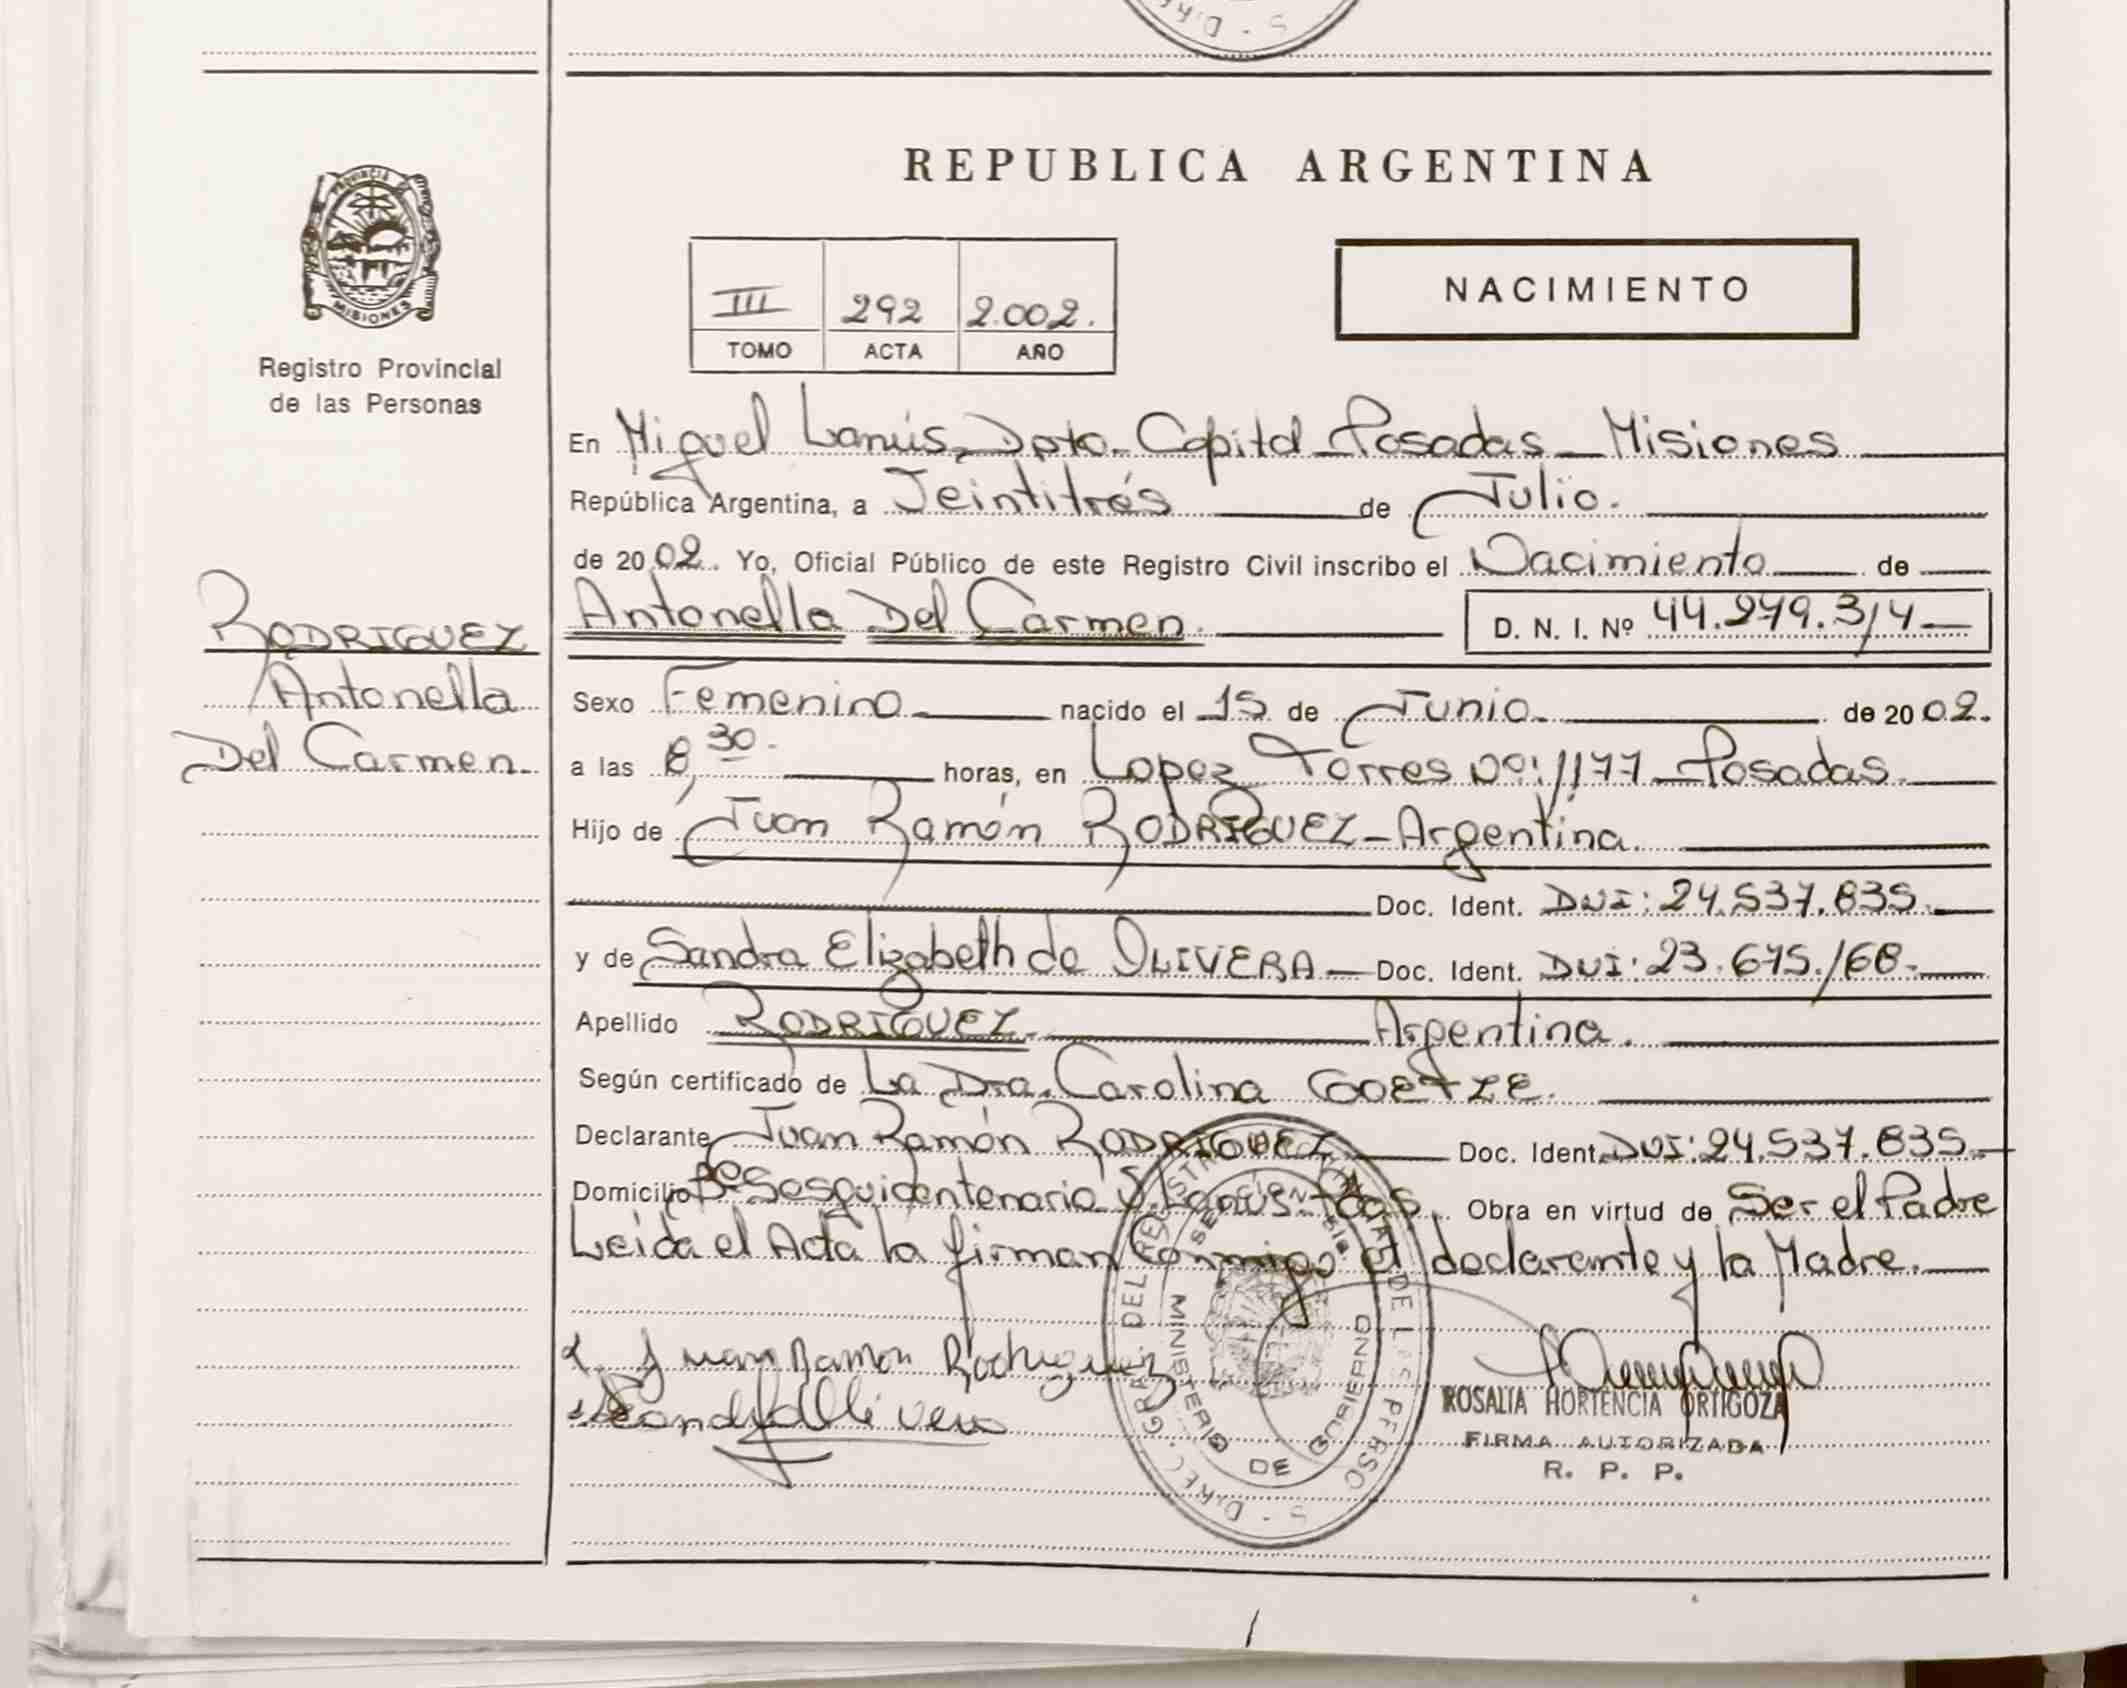 REPUBLICA ARGENTINA
PROVINCIA DE MISIONES
Registro Provincial
de las Personas
III 292 2.002.
TOMO ACTA AÑO
NACIMIENTO
RODRIGUEZ
Antonella
Del Carmen.
En Miguel Lanús, Dpto. Capital Posadas Misiones
República Argentina, a Veintitrés de Julio.
de 2002. Yo, Oficial Público de este Registro Civil inscribo el Nacimiento de
Antonella Del Carmen. D. N. I. Nº 44.279.314
Sexo Femenino nacido el 15 de Junio de 2002.
a las 8,30. horas, en Lopez Torres Nº: 1177 Posadas.
Hijo de Juan Ramón RODRIGUEZ - Argentina.
Doc. Ident. DNI: 24.537.835.
y de Sandra Elizabeth de OLIVERA - Doc. Ident. DNI: 23.675.168.
Apellido RODRIGUEZ. Argentina.
Según certificado de La Dra. Carolina GOETZE.
Declarante Juan Ramón RODRIGUEZ Doc. Ident. DNI: 24.537.835.
Domicilio Bº Sesquicentenario Lanús Pdas. Obra en virtud de Ser el Padre
Leída el Acta la firman Conmigo el declarante y la Madre.
Juan Ramon Rodriguez
ROSALIA HORTENCIA ORTIGOZA
FIRMA AUTORIZADA
R. P. P.
DIREC. GRAL. DEL REGISTRO DE LAS PERSO S
MINISTERIO DE GOBIERNO